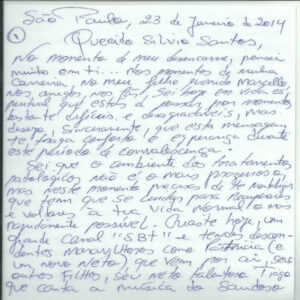 São Paulo, 23 de Janeiro de 2014
1
Querido Silvio Santos,
No momento de meu desencarne, pensei
muito em ti... Nos momentos de minha
Carreira, no meu filho querido Marcello
Nos amigos, nos fãs, Sei hoje em vida es-
piritual que estás a passar por momentos
bastante difíceis e desagradáveis, mas
desejo, Sinceramente que esta mensagem
te traga conforto e esperança durante
este período de convalescença.
Sei que o ambiente dos tratamentos
patologicos não é o mais
mas neste momento precisas de te
que tem que se cuidar para
e voltares a tua vida Normal o mais
rapidamente possível. Quanto hoje, um
grande Canal "SBT" e tendes descen-
dentes maravilhosos como Patrícia (e
um novo Neto) que vem por aí, seus
outros Filhos, seu neto talentoso Tiago
que canta a musica do Saudoso